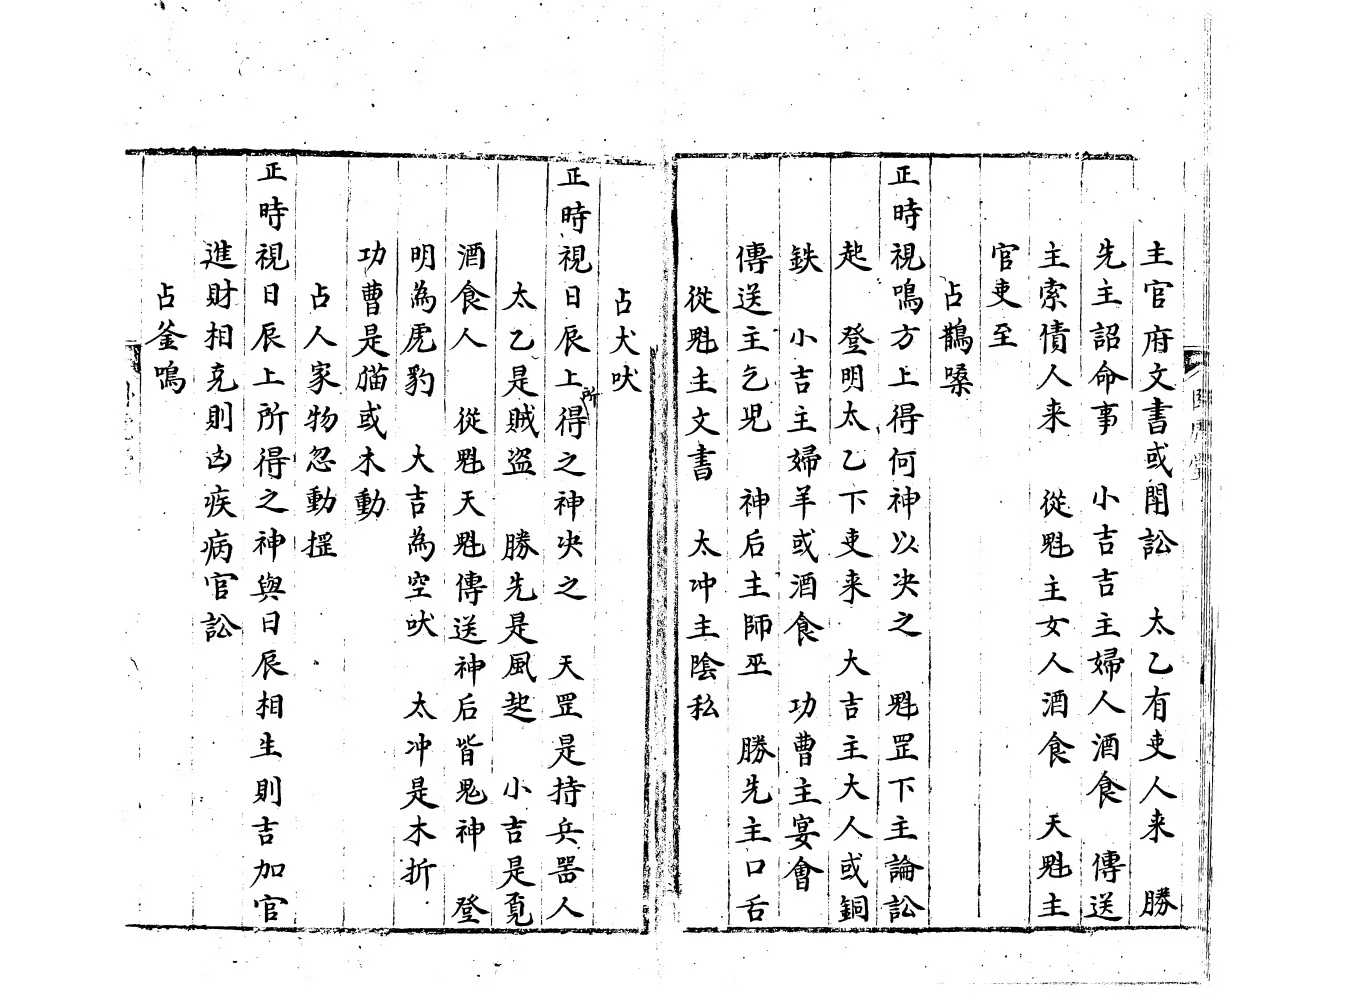 主官府文書或鬭訟　太乙有吏人来　勝
先主詔命事　小吉吉主婦人酒食　傳送
主索債人来　從魁主女人酒食　天魁主
官吏至
占鵲噪
正時視鳴方上得何神以决之　魁罡下主論訟
起　登明太乙下吏来　大吉主大人或銅
鉄　小吉主婦羊或酒食　功曹主宴會
傳送主乞児　神后主師巫　勝先主口舌
從魁主文書　太冲主陰私
占犬吠
正時視日辰上所得之神决之　天罡是持兵噐人
太乙是賊盗　勝先是風起　小吉是覓
酒食人　從魁天魁傳送神后皆鬼神　登
明為虎豹　大吉為空吠　太冲是木折
功曹是猫或木動
占人家物忽動摇
正時視日辰上所得之神與日辰相生則吉加官
進財相克則凶疾病官訟
占釜鳴